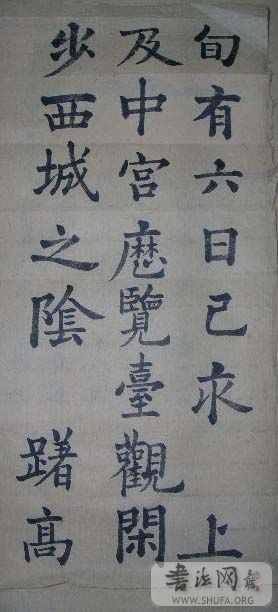 旬有六日己亥 上
及中宮歷覽臺觀閑
步西城之陰 躇高
书法网
WWW.SHUFA.ORG